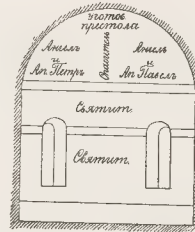 Уготов.
престола
Ангелъ
и
Ап. Петръ
Спаситель
Ангелъ
и
Ап. Павелъ
Святит.
Святит.